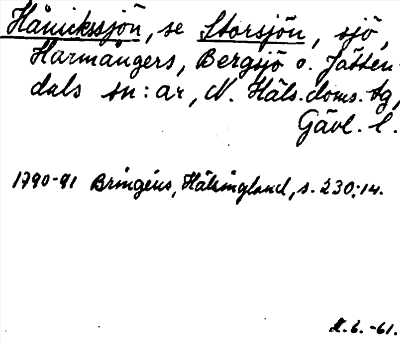 Hånickssjön, se Storsjön, sjö,
Harmångers, Bergsjö o. Jätten-
dals sn:ar, N. Häls. doms. tg,
Gävl. l.
1790-91 Bringéus, Hälsingland, s. 230:14.
H. 6. -61.